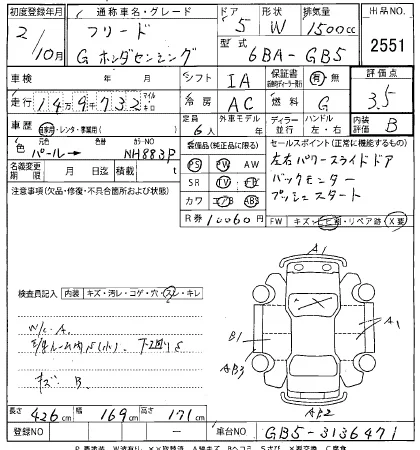 初度登録年月 通称車名・グレード ドア 形状 排気量 出品NO.
2/10月 フリード G ホンダセンシング 5 W 1500cc 2551
型式 6BA-GB5
車検 年 月 シフト IA 保証書 有 無 評価点
走行 149,732 マイル キロ 冷房 AC 燃料 G 3.5
車歴 自家用・レンタ・事業用( ) 定員 6人 外車モデル 年 ディーラー 並行 ハンドル 左・右 内装評価 B
色 元色 パール→ 色替 カラーNO NH883P
装備品(純正品に限る) セールスポイント(正常に機能するもの)
PS PW AW 左右パワースライドドア
名義変更期限 月 日迄 積載量 t SR TV ナビ バックモニター
注意事項(欠品・修復・不具合箇所および状態) カワ エアB ABS プッシュスタート
R券 10060円 FW キズ・ヒビ・リペア跡(X要)
検査員記入 内装 キズ・汚レ・コゲ・穴・スレ・キレ
W/C A.
キズ B.
A1
B1
A1
AB3
AB2
長さ 426cm 幅 169cm 高さ 171cm
登録NO — 車台NO GB5-3136471